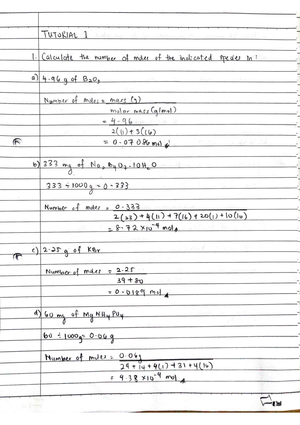 TUTORIAL 1
1. Calculate the number of moles of the indicated species in :
a) 4.96 g of B₂O₃
Number of moles = mass (g)
molar mass (g/mol)
= 4.96
2(11) + 3(16)
= 0.07086 mol
b) 333 mg of Na₂B₄O₇.10H₂O
333 ÷ 1000g = 0.333
Number of moles = 0.333
2(23) + 4(11) + 7(16) + 20(1) + 10(16)
= 8.72 x10⁻⁴ mol
c) 2.25 g of KBr
Number of moles = 2.25
39 + 80
= 0.0189 mol
d) 60 mg of MgNH₄PO₄
60 ÷ 1000g = 0.06g
Number of moles = 0.06g
24 + 14 + 4(1) + 31 + 4(16)
= 4.38 x10⁻⁴ mol